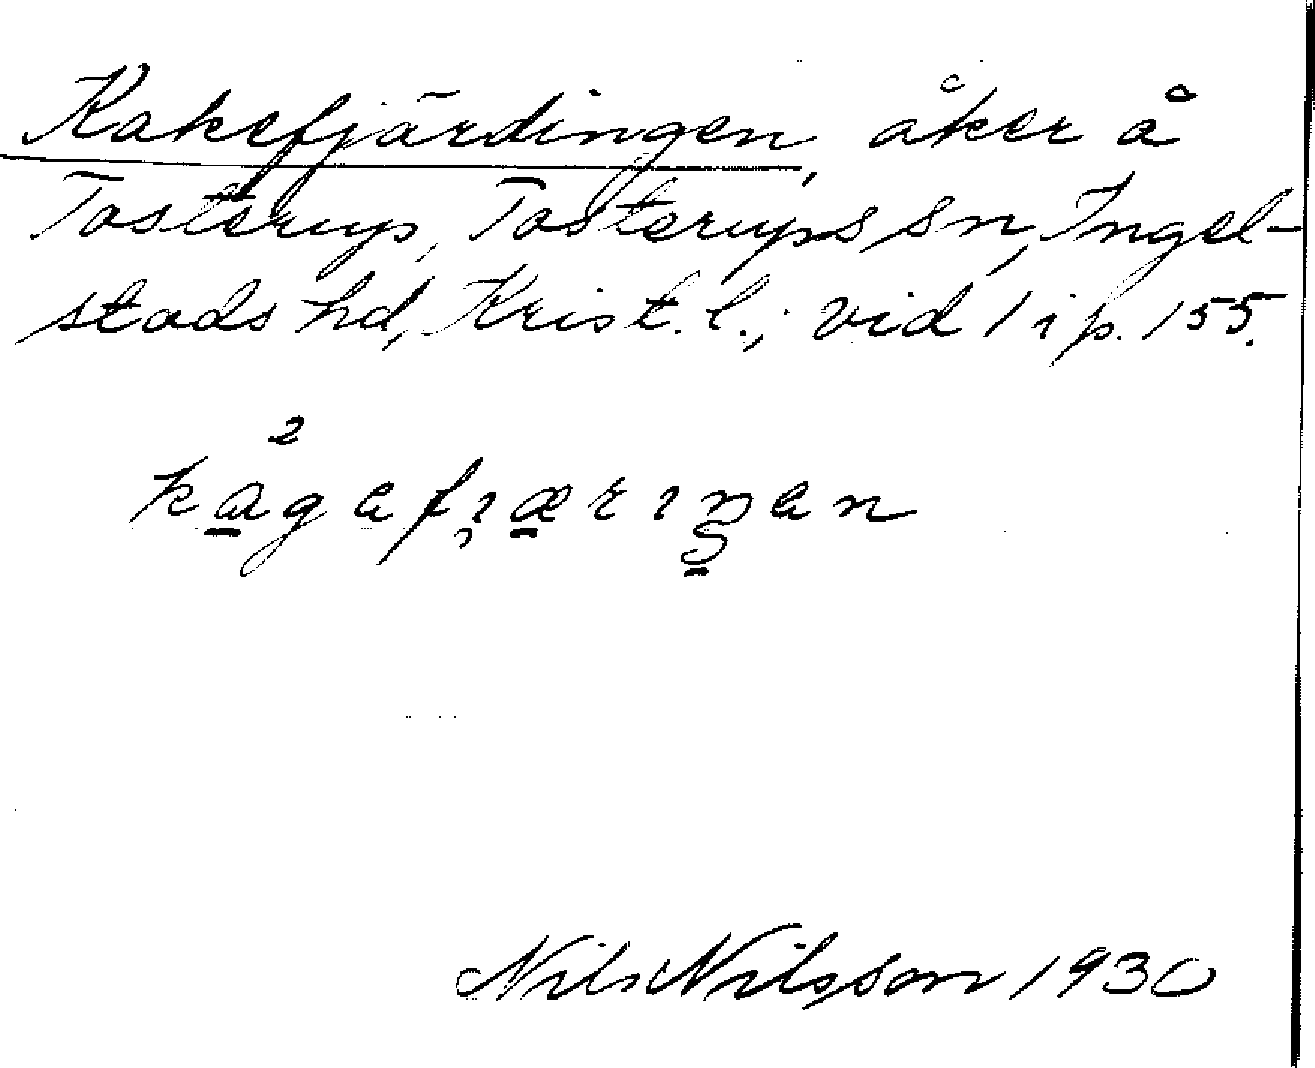 Kakefjärdingen, åker å
Tosterup, Tosterups sn, Ingel-
stads hd, Krist. l.; vid 1 i p. 155.
2
kagefi̯ærıŋen
Nils Nilsson 1930